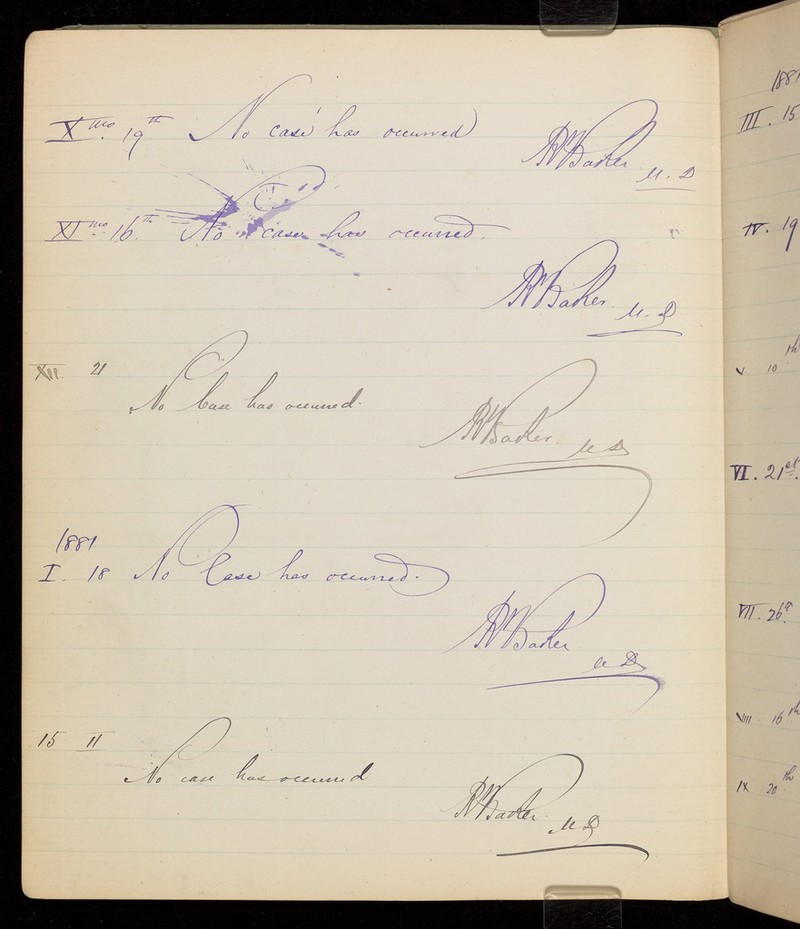 X mo. 19th No case has occurred
R Baker M.D
XI mo. 16th No case has occurred.
R Baker M.D
XII. 21
No Case has occurred.
R Baker M D
1881
I. 18 No Case has occurred.
R Baker M D
15 II
No case has occurred
R Baker M D
1881
III. 15
IV. 19
V 10th
VI. 21st.
VII. 26th
VIII 16th
IX 20th